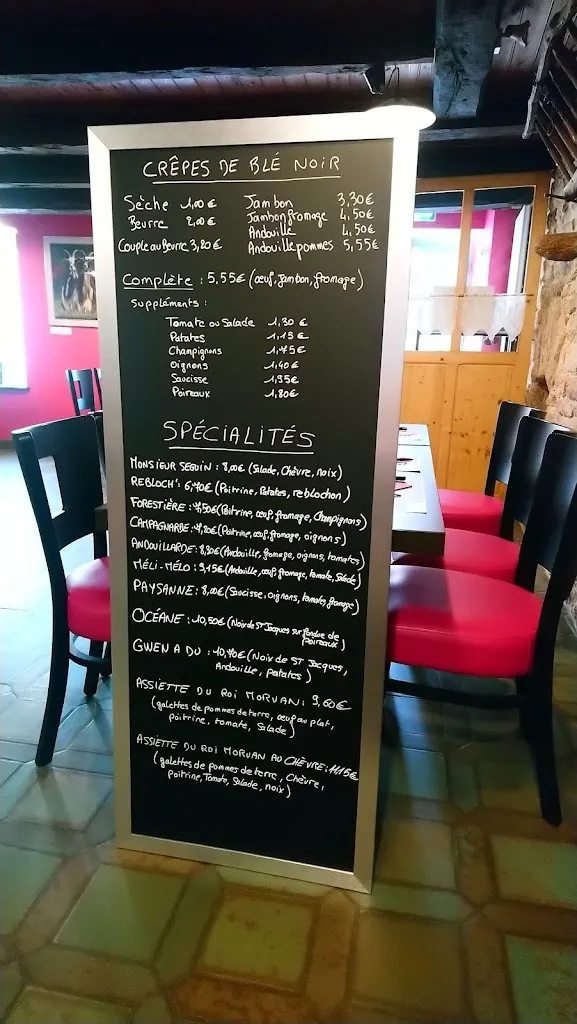 CRÊPES DE BLÉ NOIR
Sèche 1,00 €
Beurre 2,00 €
Couple au Beurre 3,20 €
Jambon 3,30 €
Jambon fromage 4,50 €
Andouille 4,50 €
Andouille pommes 5,55 €
Complète : 5,55 € (œuf, Jambon, fromage)
Suppléments :
Tomate ou Salade 1,30 €
Patates 1,15 €
Champignons 1,75 €
Oignons 1,40 €
Saucisse 1,95 €
Poireaux 1,80 €
SPÉCIALITÉS
MONSIEUR SEGUIN : 8,00 € (Salade, Chèvre, noix)
REBLOCH' : 6,70 € (Poitrine, Patates, reblochon)
FORESTIÈRE : 7,50 € (Poitrine, œuf, fromage, Champignons)
CAMPAGNARDE : 7,20 € (Poitrine, œuf, fromage, oignons)
ANDOUILLARDE : 8,30 € (Andouille, fromage, oignons, tomates)
MÉLI-MÉLO : 9,15 € (Andouille, œuf, fromage, tomate, Salade)
PAYSANNE : 8,00 € (Saucisse, oignons, tomate, fromage)
OCÉANE : 10,50 € (Noix de ST Jacques sur fondue de
poireaux)
GWEN A DU : 10,70 € (Noix de ST Jacques,
Andouille, patates)
ASSIETTE DU ROI MORVAN : 9,60 €
(galettes de pommes de terre, œuf au plat,
poitrine, tomate, Salade)
ASSIETTE DU ROI MORVAN AU CHÈVRE : 11,15 €
(galettes de pommes de terre, Chèvre,
poitrine, Tomate, Salade, noix)